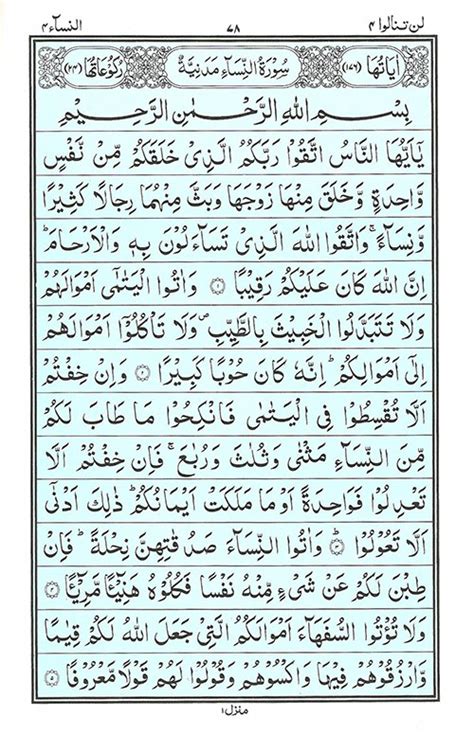 لن تنالوا ۴ ۷۸ النسآء ۴
اٰیاتُهَا (۱۷۶) سُوْرَةُ النِّسَآءِ مَدَنِیَّةٌ رُكُوْعَاتُهَا (۲۴)
بِسْمِ اللهِ الرَّحْمٰنِ الرَّحِیْمِ
یٰۤاَیُّهَا النَّاسُ اتَّقُوْا رَبَّكُمُ الَّذِیْ خَلَقَكُمْ مِّنْ نَّفْسٍ
وَّاحِدَةٍ وَّخَلَقَ مِنْهَا زَوْجَهَا وَبَثَّ مِنْهُمَا رِجَالًا كَثِیْرًا
وَّنِسَآءً ۚ وَاتَّقُوا اللهَ الَّذِیْ تَسَآءَلُوْنَ بِهٖ وَالْاَرْحَامَ ؕ
اِنَّ اللهَ كَانَ عَلَیْكُمْ رَقِیْبًا ۱ وَاٰتُوا الْیَتٰمٰۤی اَمْوَالَهُمْ
وَلَا تَتَبَدَّلُوا الْخَبِیْثَ بِالطَّیِّبِ ۪ وَلَا تَاْكُلُوْۤا اَمْوَالَهُمْ
اِلٰۤی اَمْوَالِكُمْ ؕ اِنَّهٗ كَانَ حُوْبًا كَبِیْرًا ۲ وَاِنْ خِفْتُمْ
اَلَّا تُقْسِطُوْا فِی الْیَتٰمٰی فَانْكِحُوْا مَا طَابَ لَكُمْ
مِّنَ النِّسَآءِ مَثْنٰی وَثُلٰثَ وَرُبٰعَ ۚ فَاِنْ خِفْتُمْ اَلَّا
تَعْدِلُوْا فَوَاحِدَةً اَوْ مَا مَلَكَتْ اَیْمَانُكُمْ ؕ ذٰلِكَ اَدْنٰۤی
اَلَّا تَعُوْلُوْا ؕ ۳ وَاٰتُوا النِّسَآءَ صَدُقٰتِهِنَّ نِحْلَةً ؕ فَاِنْ
طِبْنَ لَكُمْ عَنْ شَیْءٍ مِّنْهُ نَفْسًا فَكُلُوْهُ هَنِیْٓئًا مَّرِیْٓئًا ۴
وَلَا تُؤْتُوا السُّفَهَآءَ اَمْوَالَكُمُ الَّتِیْ جَعَلَ اللهُ لَكُمْ قِیٰمًا
وَّارْزُقُوْهُمْ فِیْهَا وَاكْسُوْهُمْ وَقُوْلُوْا لَهُمْ قَوْلًا مَّعْرُوْفًا ۵
منزل ۱